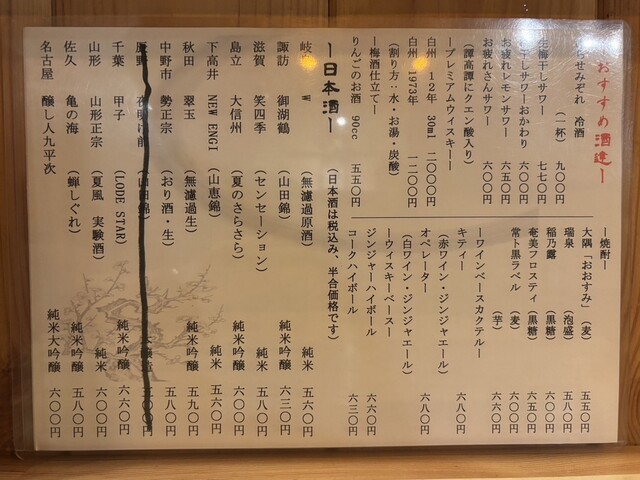 おすすめ酒達ー
らせみぞれ 冷酒
(一杯) 九〇〇円
生梅干しサワー 七七〇円
干しサワーおかわり 六〇〇円
お疲れレモンサワー 六五〇円
お疲れさんサワー 六〇〇円
(譚高譚にクエン酸入り)
ープレミアムウィスキーー
白州 12年 30ml 二〇〇〇円
白州 1973年 一二〇〇円
(割り方:水・お湯・炭酸)
ー梅酒仕立てー
りんごのお酒 90cc 五五〇円
ー焼酎ー
大隅「おおすみ」(麦) 五五〇円
瑞泉 (泡盛) 五八〇円
稲乃露 (黒糖) 六〇〇円
奄美フロスティ (黒糖) 六五〇円
常ト黒ラベル (麦) 六〇〇円
(芋) 六六〇円
ーワインベースカクテルー
キティー 六八〇円
(赤ワイン・ジンジャエール)
オペレーター 六八〇円
(白ワイン・ジンジャエール)
ーウィスキーベースー
ジンジャーハイボール 六六〇円
コークハイボール 六三〇円
ー日本酒ー (日本酒は税込み、半合価格です)
岐 w (無濾過原酒) 純米 五六〇円
諏訪 御湖鶴 (山田錦) 純米吟醸 六三〇円
滋賀 笑四季 (センセーション) 純米 五八〇円
島立 大信州 (夏のさらさら) 純米吟醸 六〇〇円
下高井 NEW ENGI (山恵錦) 純米 五六〇円
秋田 翠玉 (無濾過生) 純米吟醸 五九〇円
中野市 勢正宗 (おり酒・生) 五八〇円
夜明け前 (山田錦)
千葉 甲子 (LODE STAR) 純米吟醸 六六〇円
山形 山形正宗 (夏風 実験酒) 純米 六〇〇円
佐久 亀の海 (蝉しぐれ) 純米吟醸 五八〇円
名古屋 醸し人九平次 純米大吟醸 六〇〇円